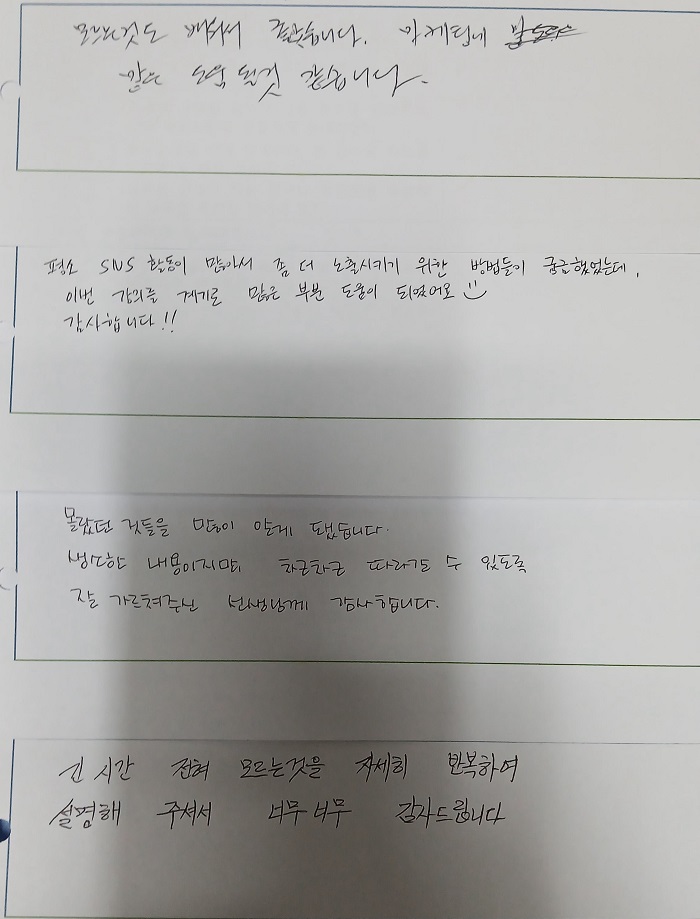 모르는것도 배워서 좋았습니다. 마케팅에
많은 도움 될것 같습니다.
평소 SNS 활동이 많아서 좀 더 노출시키기 위한 방법들이 궁금했었는데,
이번 강의를 계기로 많은 부분 도움이 되었어요
감사합니다!!
몰랐던 것들을 많이 알게 됐습니다.
생소한 내용이지만 차근차근 따라갈 수 있도록
잘 가르쳐주신 선생님께 감사합니다.
긴 시간 전혀 모르는것을 자세히 반복하여
설명해 주셔서 너무너무 감사드립니다